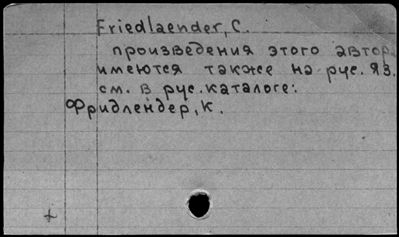 Friedlaender, C.
произведения этого автор.
имеются также на рус. яз.
см. в рус. каталоге:
Фридлендер, К.
+